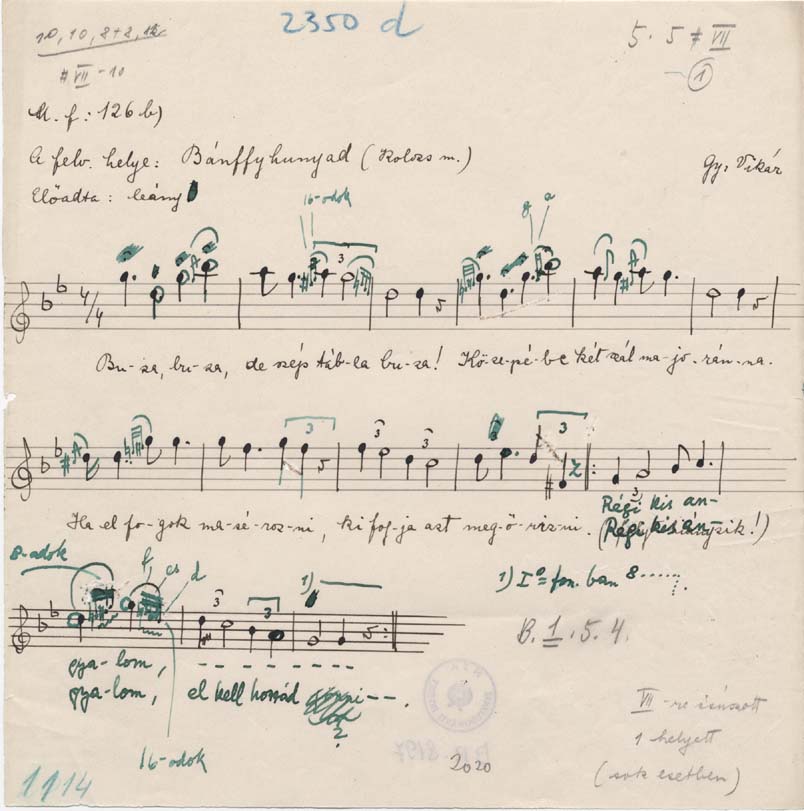 10, 10, 8+8, 12
2350 d
5. 5 # VII
# VII - 10
1
M. f: 126 b)
A felv. helye: Bánffyhunyad (Kolozs m.)
Gy: Vikár
Előadta: leány
16-odok
g a
3
4/4
Bu-za, bu-za, de szép táb-la bu-za! Kö-ze-pé-be két szál ma-jo-rán-na.
3 3 3 3
Ha el fo-gok ma-sé-roz-ni, ki fog-ja azt meg-ő-riz-ni.
3
Régi kis an-
Régi kis án-
8-adok
f cs d
1)
1) I° = fon. ban 8......
3 3
B. 1. 5. 4.
gya-lom,
gya-lom, el kell hozzád
?
VII-re csúszott
1 helyett
(sok esetben)
16-odok
2020
1114